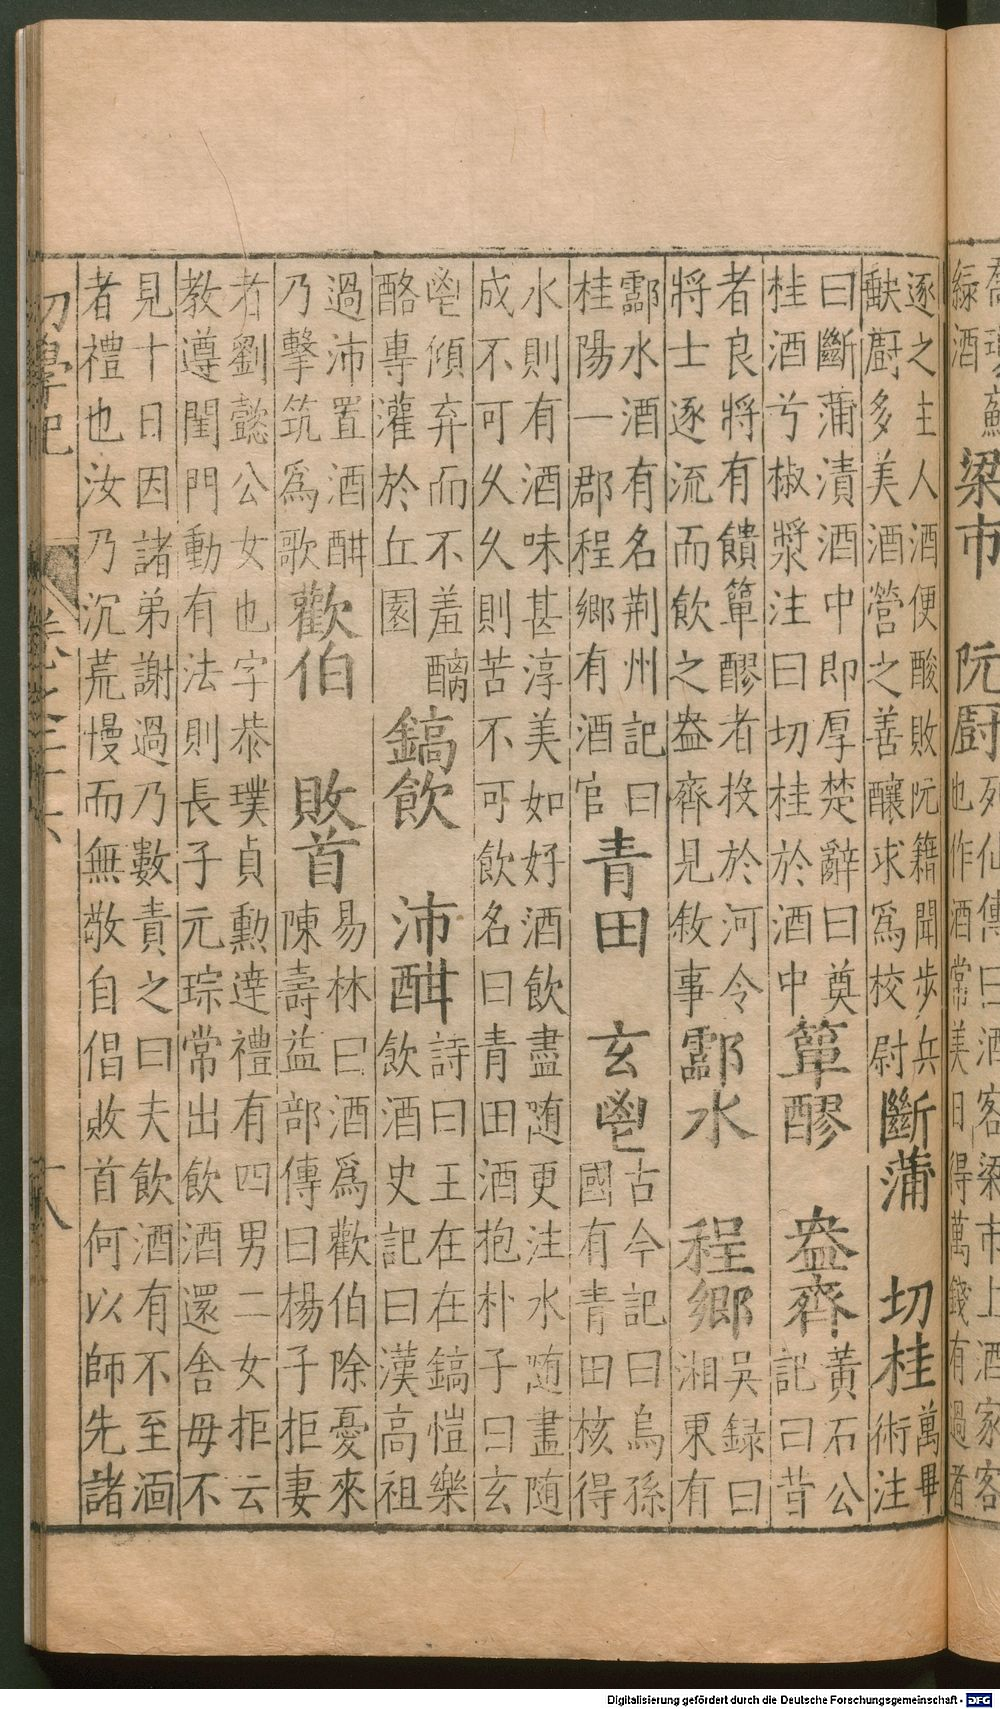 綠酒
梁市　阮廚
列仙傳曰酒客梁市上酒家客
也作酒常美日得萬錢有過者
逐之主人酒便酸敗阮籍聞步兵
缺廚多美酒營之善釀求爲校尉
斷蒲　切桂
萬畢
術注
曰斷蒲漬酒中即厚楚辭曰奠
桂酒兮椒漿注曰切桂於酒中
簞醪　盎齊
黃石公
記曰昔
者良將有饋簞醪者投於河令
將士逐流而飲之盎齊見敘事
酃水　程鄉
吳録曰
湘東有
酃水酒有名荆州記曰
桂陽一郡程鄉有酒官
青田　玄鬯
古今記曰烏孫
國有青田核得
水則有酒味甚淳美如好酒飲盡随更注水随盡随
成不可久久則苦不可飲名曰青田酒抱朴子曰玄
鬯傾弃而不羞醨
酪專灌於丘園
鎬飲　沛酣
詩曰王在在鎬愷樂
飲酒史記曰漢高祖
過沛置酒酣
乃擊筑爲歌
歡伯　敗首
易林曰酒爲歡伯除憂來
陳壽益部傳曰楊子拒妻
者劉懿公女也字恭璞貞勳達禮有四男二女拒云
教遵閨門動有法則長子元琮常出飲酒還舍毋不
見十日因諸弟謝過乃數責之曰夫飲酒有不至湎
者禮也汝乃沉荒慢而無敬自倡敗首何以師先諸
初學記　卷之二十六　十八
Digitalisierung gefördert durch die Deutsche Forschungsgemeinschaft - DFG